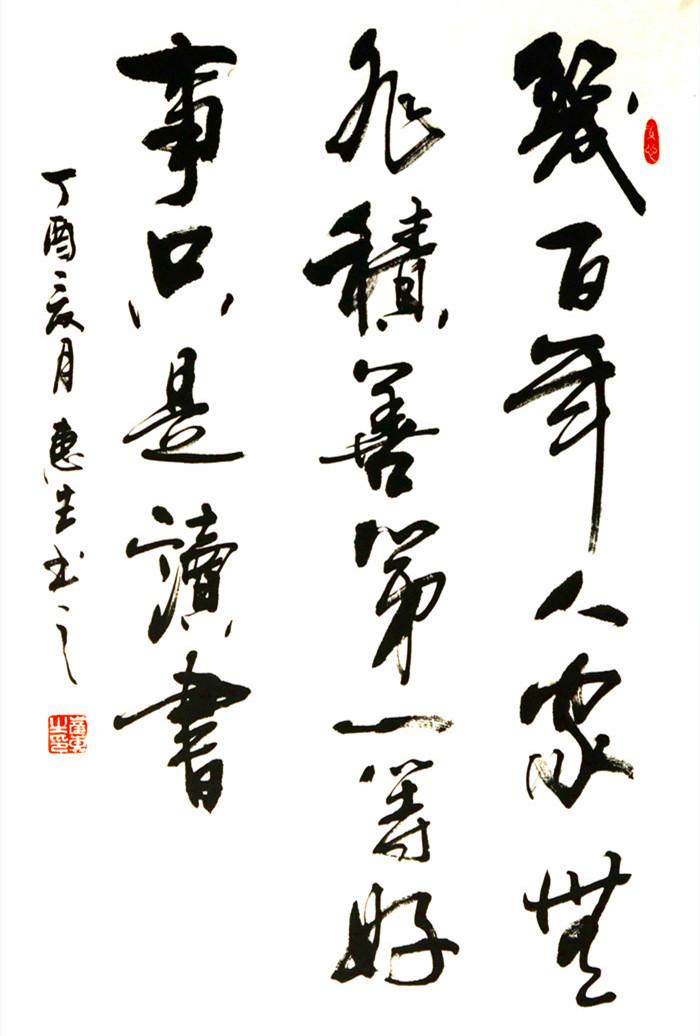 幾百年人家無
非積善第一等好
事只是讀書
丁酉亥月惠生书之